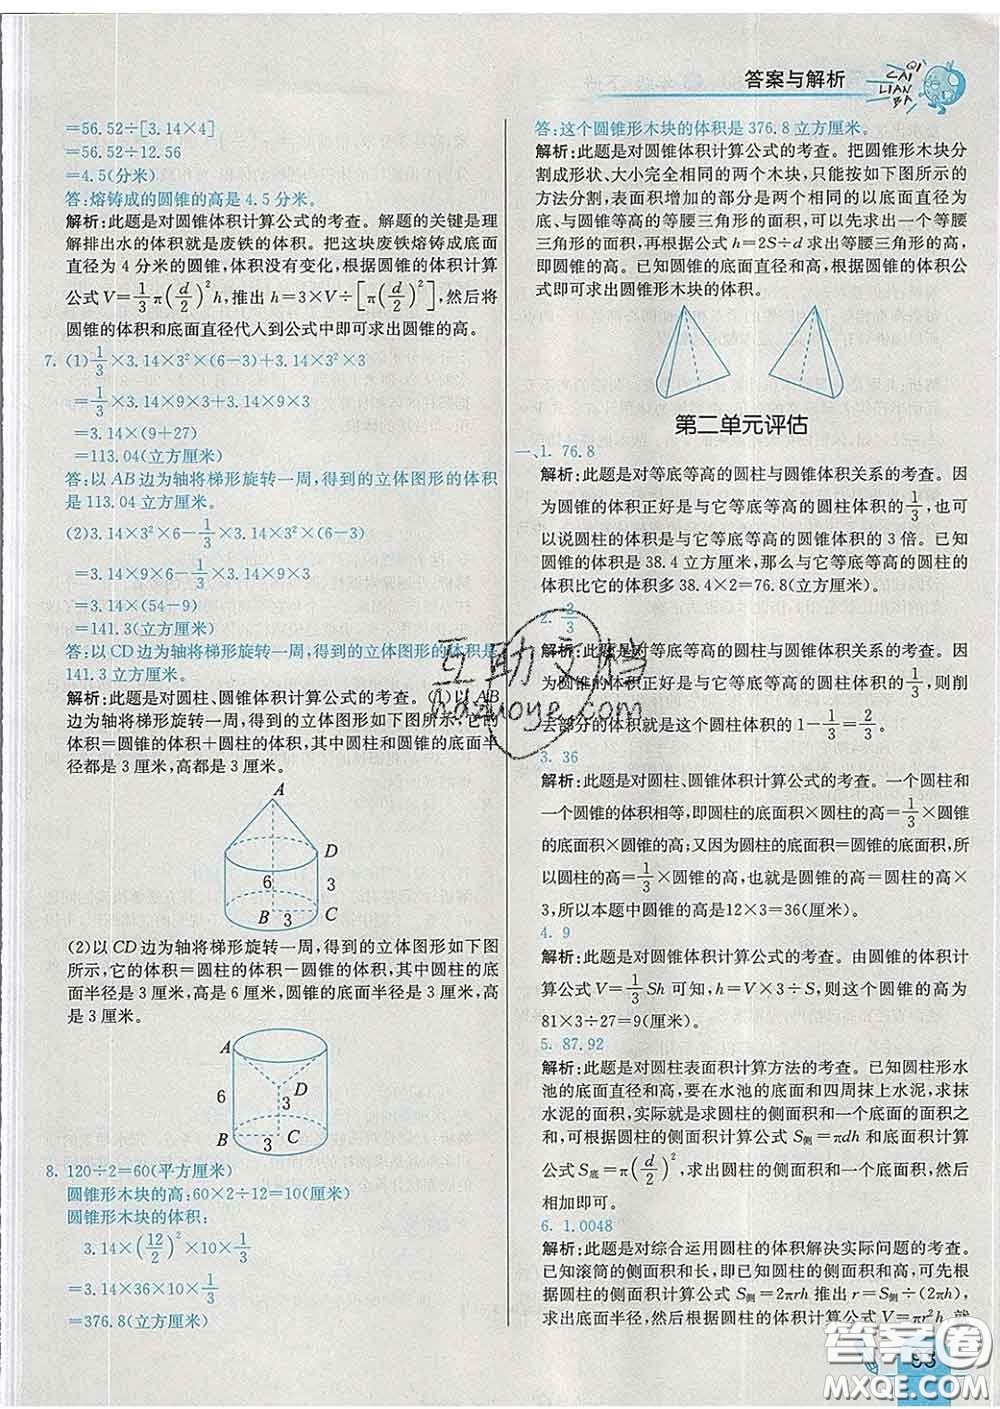 答案与解析
QI
CAI
LIAN
BA
=56.52÷[3.14×4]
=56.52÷12.56
=4.5(分米)
答:熔铸成的圆锥的高是4.5分米。
解析:此题是对圆锥体积计算公式的考查。解题的关键是理
解排出水的体积就是废铁的体积。把这块废铁熔铸成底面
直径为4分米的圆锥,体积没有变化,根据圆锥的体积计算
公式V=1/3π(d/2)²h,推出h=3×V÷[π(d/2)²],然后将
圆锥的体积和底面直径代人到公式中即可求出圆锥的高。
7. (1)1/3×3.14×3²×(6-3)+3.14×3²×3
=1/3×3.14×9×3+3.14×9×3
=3.14×(9+27)
=113.04(立方厘米)
答:以AB边为轴将梯形旋转一周,得到的立体图形的体积
是113.04立方厘米。
(2)3.14×3²×6-1/3×3.14×3²×(6-3)
=3.14×9×6-1/3×3.14×9×3
=3.14×(54-9)
=141.3(立方厘米)
答:以CD边为轴将梯形旋转一周,得到的立体图形的体积是
141.3立方厘米。
解析:此题是对圆柱、圆锥体积计算公式的考查。(1)以AB
边为轴将梯形旋转一周,得到的立体图形如下图所示,它的
体积=圆锥的体积+圆柱的体积,其中圆柱和圆锥的底面半
径都是3厘米,高都是3厘米。
A
D
6
3
B 3 C
(2)以CD边为轴将梯形旋转一周,得到的立体图形如下图
所示,它的体积=圆柱的体积-圆锥的体积,其中圆柱的底
面半径是3厘米,高是6厘米,圆锥的底面半径是3厘米,高
是3厘米。
A
D
6
3
B 3 C
8. 120÷2=60(平方厘米)
圆锥形木块的高:60×2÷12=10(厘米)
圆锥形木块的体积:
3.14×(12/2)²×10×1/3
=3.14×36×10×1/3
=376.8(立方厘米)
答:这个圆锥形木块的体积是376.8立方厘米。
解析:此题是对圆锥体积计算公式的考查。把圆锥形木块分
割成形状、大小完全相同的两个木块,只能按如下图所示的
方法分割,表面积增加的部分是两个相同的以底面直径为
底、与圆锥等高的等腰三角形的面积,可以先求出一个等腰
三角形的面积,再根据公式h=2S÷d求出等腰三角形的高,
即圆锥的高。已知圆锥的底面直径和高,根据圆锥的体积公
式即可求出圆锥形木块的体积。
第二单元评估
一、1. 76.8
解析:此题是对等底等高的圆柱与圆锥体积关系的考查。因
为圆锥的体积正好是与它等底等高的圆柱体积的1/3,也可
以说圆柱的体积是与它等底等高的圆锥体积的3倍。已知
圆锥的体积是38.4立方厘米,那么与它等底等高的圆柱的
体积比它的体积多38.4×2=76.8(立方厘米)。
2. 2/3
解析:此题是对等底等高的圆柱与圆锥体积关系的考查。因
为圆锥的体积正好是与它等底等高的圆柱体积的1/3,则削
去部分的体积就是这个圆柱体积的1-1/3=2/3。
3. 36
解析:此题是对圆柱、圆锥体积计算公式的考查。一个圆柱和
一个圆锥的体积相等,即圆柱的底面积×圆柱的高=1/3×圆锥
的底面积×圆锥的高;又因为圆柱的底面积=圆锥的底面积,所
以圆柱的高=1/3×圆锥的高,也就是圆锥的高=圆柱的高×
3,所以本题中圆锥的高是12×3=36(厘米)。
4. 9
解析:此题是对圆锥体积计算公式的考查。由圆锥的体积计
算公式V=1/3Sh可知,h=V×3÷S,则这个圆锥的高为
81×3÷27=9(厘米)。
5. 87.92
解析:此题是对圆柱表面积计算方法的考查。已知圆柱形水
池的底面直径和高,要在水池的底面和四周抹上水泥,求抹
水泥的面积,实际就是求圆柱的侧面积和一个底面的面积之
和,可根据圆柱的侧面积计算公式S侧=πdh和底面积计算
公式S底=π(d/2)²,求出圆柱的侧面积和底面积,然后
相加即可。
6. 1.0048
解析:此题是对综合运用圆柱的体积解决实际问题的考查。
已知滚筒的侧面积和长,即已知圆柱的侧面积和高,可先根
据圆柱的侧面积计算公式S侧=2πrh推出r=S侧÷(2πh),
求出底面半径,然后根据圆柱的体积计算公式V=πr²h,就
93
互助文档
hdzuoye.com
答案圈
MXQE.COM